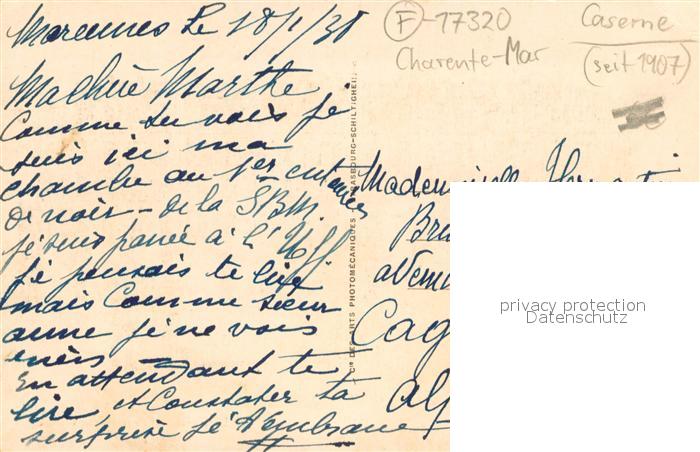 Marennes Le 18/1/38
Ma chère Marthe
Comme tu vois je
suis ici ma
chambre au 1er
de noir - de la SBM.
je suis à l'
je pensais te lire
mais comme sœur
anne je ne vois
rien
En attendant te
lire, et Constater ta
surprise je t'embrasse
F-17320
Charente-Mar
Caserne
(seit 1907)
Cie DES ARTS PHOTOMÉCANIQUES - STRASBOURG-SCHILTIGHEIM
Mademoiselle
Bru
Cag
privacy protection
Datenschutz